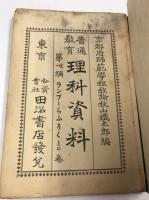 京都府師範學校教諭秋山鐵太郎編
普通
教育
理科資料
第四編
ランプとらふそくとの巻
東京
合資
會社
田沼書店發兌